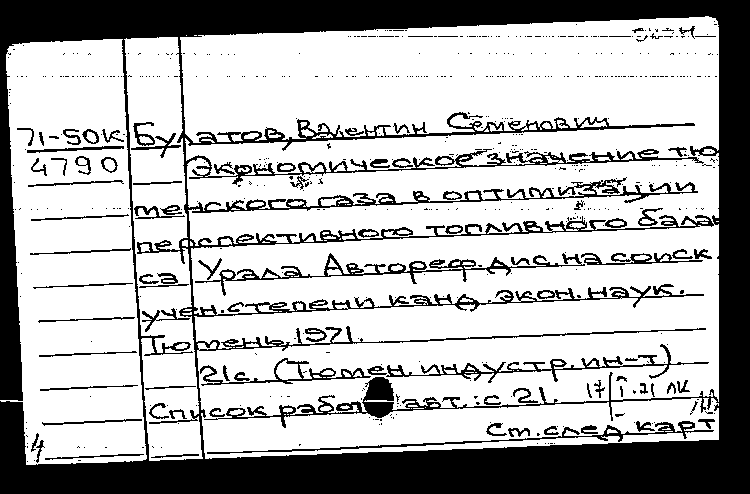 71-50к Булатов, Валентин Семенович
4790 Экономическое значение тю
менского газа в оптимизации
перспективного топливного балан
са Урала. Автореф. дис. на соиск.
учен. степени канд. экон. наук.
Тюмень, 1971.
21с. (Тюмен. индустр. ин-т).
Список работ авт.: с. 21. 17
Ст. след. карт
4